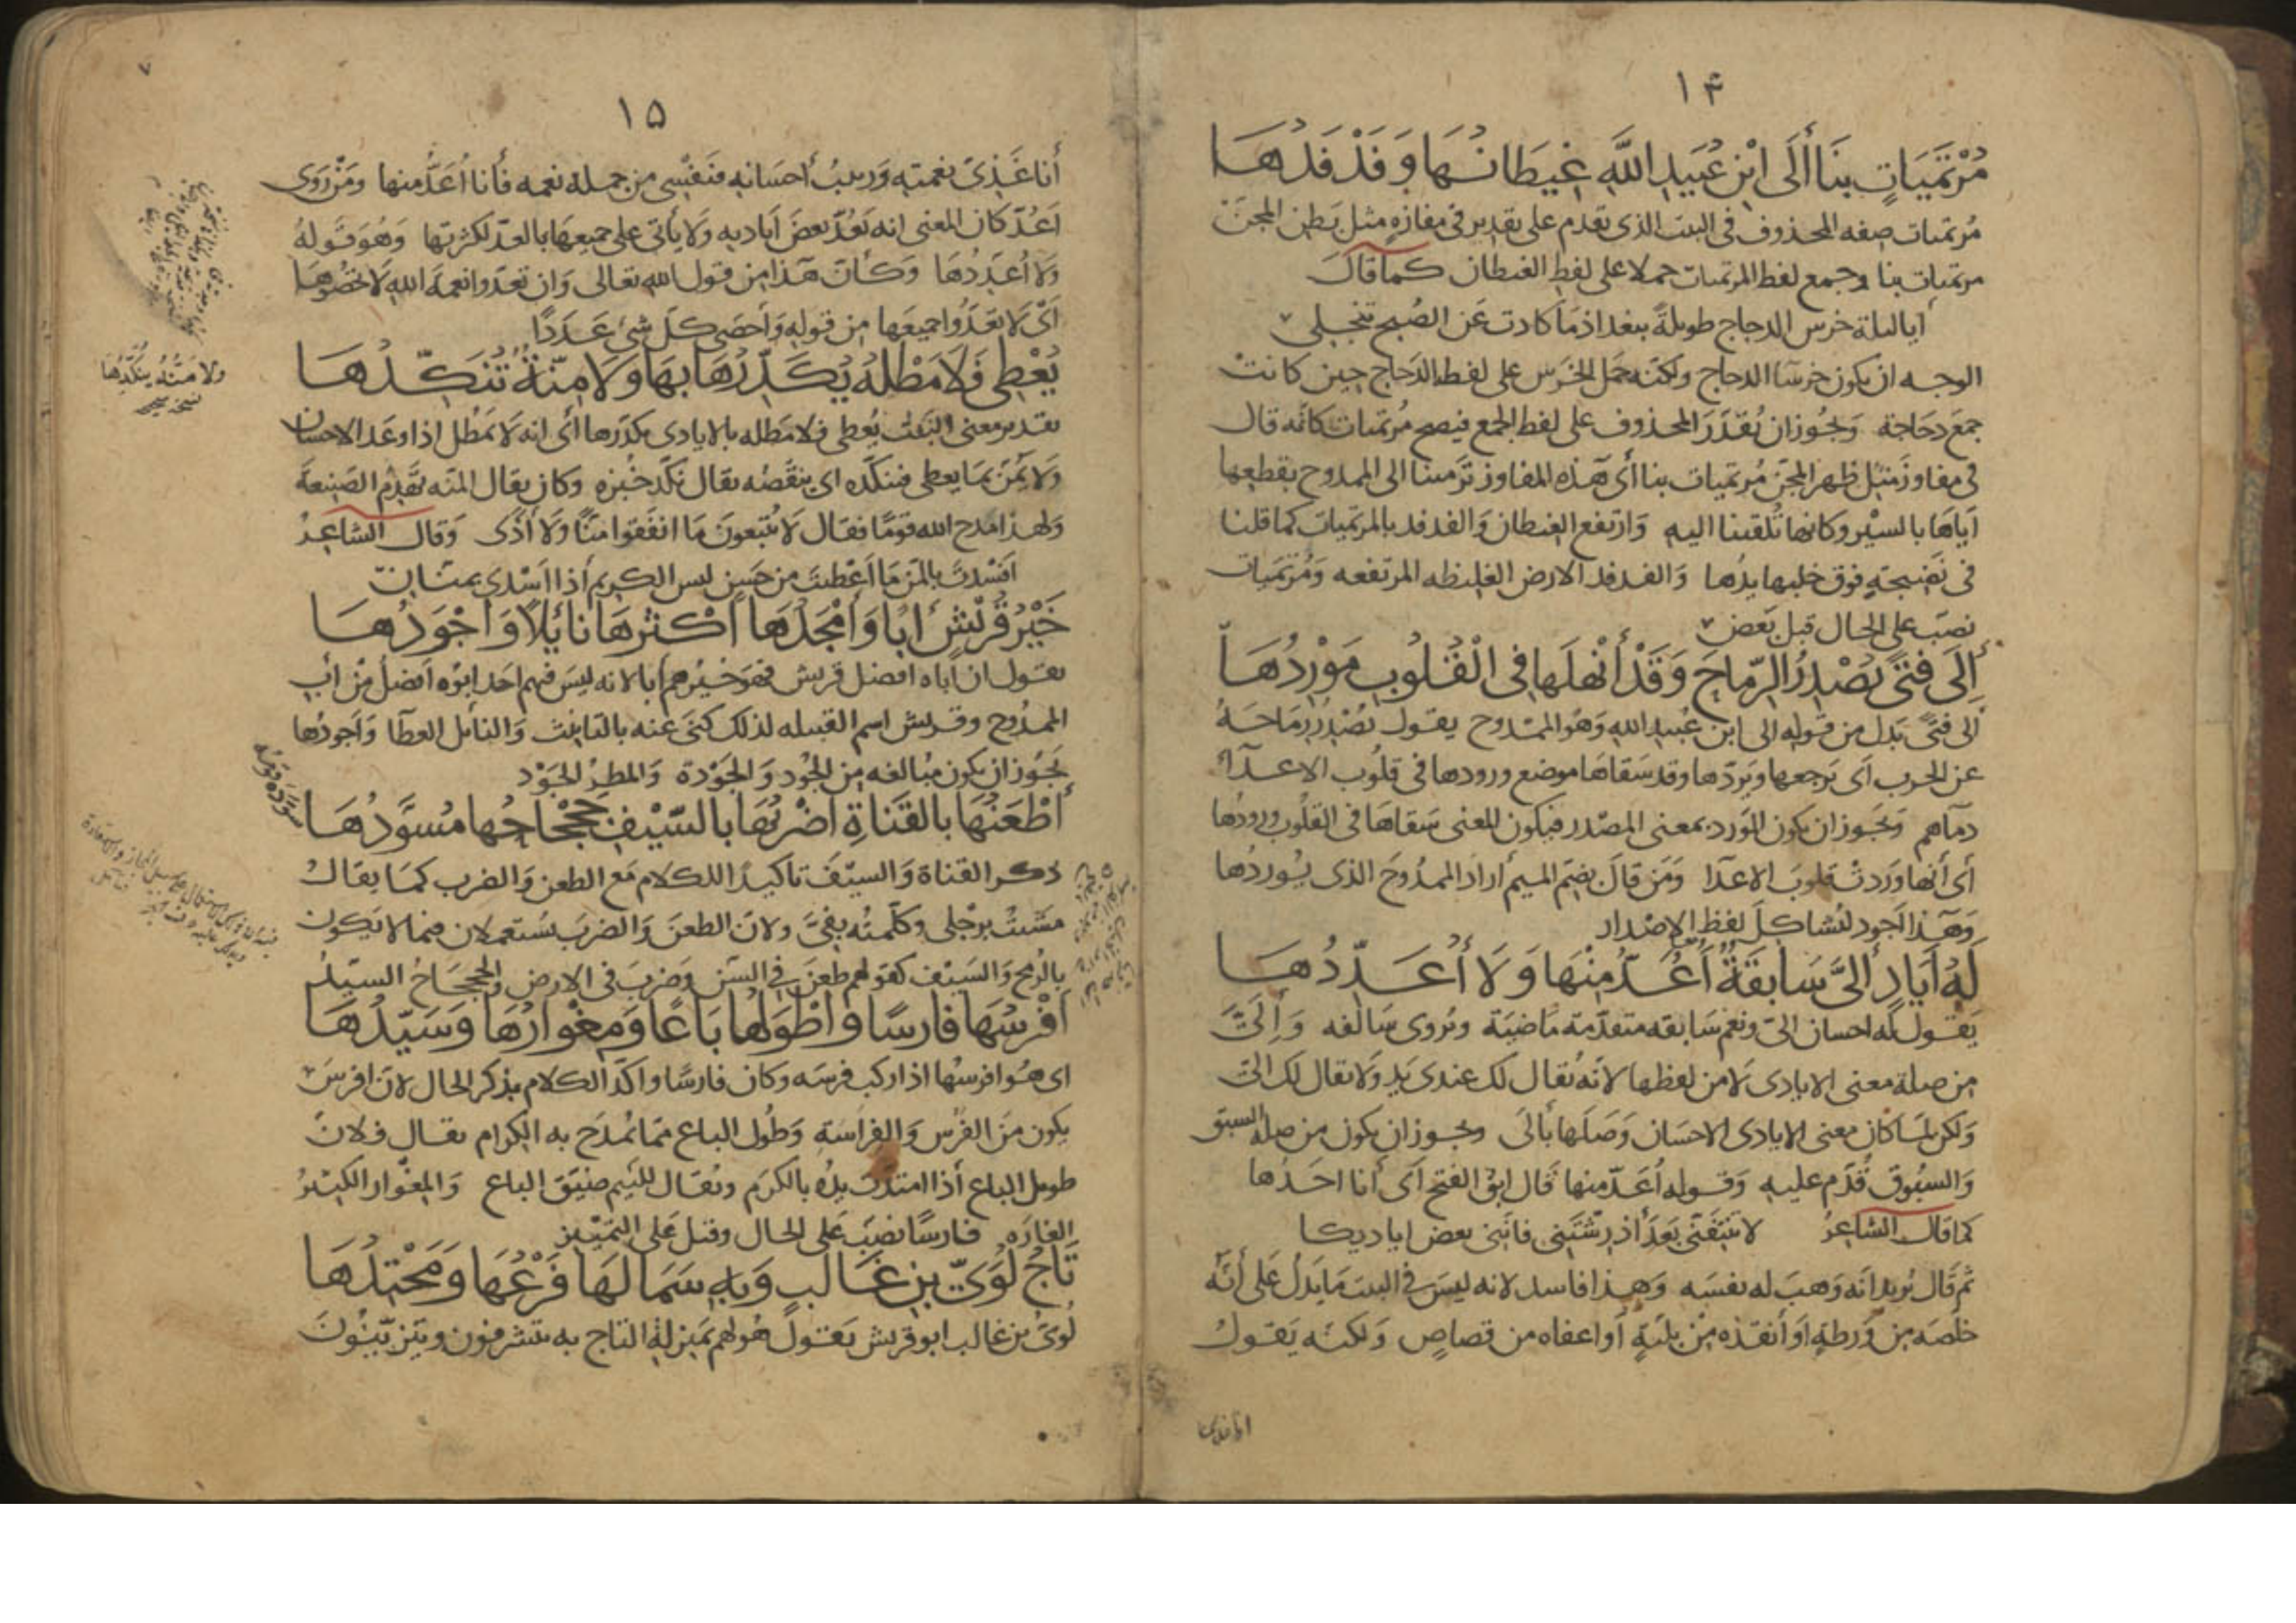 ١٤
مُرْتَمَيَاتٍ بِنَا أَلَى ابْنِ عُبَيدِ اللَّهِ غِيطَانُهَا وَفَدْفَدُهَا
مُرتميات صفه المحذوف فى البيت الذى تقدم على تقدير فى مفازةٍ مثل بَطن المجنّ
مرتميات بنا وجمع لفظ المرتميات حملا على لفظ الغيطان كما قال
أيا ليلة خرس الدجاج طويلةً ببغداذ مَا كادت عَن الصُبح تنجلى
الوجه ان يكون خرسَا الدجاج ولكنّه حمَل الخرَس على لفظ الدَجاج حين كانتْ
جمعَ دجَاجة وَيجُوز ان تُقدَرَ المحذوف على لفظ الجمع فيصح مُرتميات كانّه قال
فى مفاوزَ مثل ظهر المجنّ مُرتميات بنا أى هَذه المفاوز تَرمينا الى الممدوح بقطعها
اَياهَا بالسيْر وكانها تُلقينا اليه وَارتفع الغيطان وَالفدفد بالمرتميات كما قلنا
فى نَضيجةٍ فوق خلبها يدُها وَالفدفد الارض الغليظه المرتفعه وَمُرتميات
نصَب على الحال قبل بَعض
إِلَى فتًى يُصْدِرُ الرِّمَاحَ وَقَدْ أَنْهَلَهَا فِى الْقُلُوبِ مَوْرِدُهَا
الى فتًى بَدَل من قوله الى ابن عُبيد الله وَهُو الممْدوح يقول يُصْدِرُ رمَاحَهُ
عن الحرب اَى يَرجعها وَيَردّها وقد سَقاهَا موضع ورودها فى قلُوب الاعدآء
دمآهم وَيَجوز ان يكون المَورد بمعنى المصْدر فيكون المعنى سَقاهَا فى القلُوب ورودُها
أى أنها وَرَدتْ قلوبَ الاعدَا وَمَن قالَ بضِم الميم أرادَ الممدُوحَ الذى يُوردُها
وَهَذا اَجود لتُشاكِلَ لفظ الاِصْدار
لَهُ أَيَادٍ أِلىَّ سَابِقَةٌ أَعُدُّ مِنْهَا وَلَا أُعَدِّدُهَا
يَقول له احسان الىّ ونعم سَابقه متقدّمة مَاضيَة ويُروى سَالفه وَاِلَىَّ
مِن صلة معنى الايادى لَا من لفظها لانّه يُقال لك عندى يَد وَلا يقال لك الىّ
وَلكن لمَا كان معنى الايادى الاحسَان وَصَلَها بأِلَى ويجوز ان يكون من صله السبق
وَالسبُوق قُدّم عليه وَقوله اَعُدّ منها قَال ابن الفتح اَى أنا احَدُها
كما قال الشاعِرُ لا تنتفنّى بَعدَ أذ رِشْتَنى فانّنى بعض اياديكا
ثم قَال يُريد انّه وَهبَ له نفسَه وَهذا فاسد لانه ليسَ فى البيت مَا يَدلُ عَلى أنّه
خلصَه مِن وَرطةٍ اَو أنقذه مِنْ بليّةٍ أو اعفاه من قصاصٍ وَلكنّه يَقولُ
انا غذى
١٥
أنا غَذِىُّ نعمته وَربيبُ أحسَانهِ فنَفْسِى من جملة نعمه فأنا أُعَدُّ منها ومَنْ رَوى
اَعُدّ كان المعنى انه يَعُدّ بعضَ اَياديه وَلَا يأتى على جميعهَا بالعدّ لكثرتها وَهُوَ قولهُ
وَلَا اُعَدِّدُهَا وَكأنّ هَذا مِن قول الله تعَالى وَان تعدّوا نعمةَ اللهِ لا تحصُوهَا
اَىْ لَا تعَدُّوا جميعَها مِن قوله وَأحصَى كلّ شىءٍ عَدَدًا
يُعْطِى فَلَا مَطْلَهُ يُكَدِّرُهَا بِهَا وَلَا مِنّةٌ تُنَكِّدُهَا
تقدير معنى البيَت يُعطى فلا مَطله بالايادى يكدّرها أى انه لَا يَمْطل اذا وعَد الاحسان
وَلا يَمُنّ بمَا يعطى فينكّده اى ينقّصُه يقال نكّد خُبْزه وكان يقال المنّه تَهَدِم الصَنيعَة
وَلهذا مدح الله قومًا فقال لا يُتبعونَ مَا انفَقوا مَنًّا وَلَا أذًى وَقال الشاعِرُ
افسْدتَ بالمَنّ مَا أعْطيتَ مِن حسَنٍ ليس الكريم أذا اَسْدى بمَنّانِ
خَيْرُ قُرَيْشٍ اَبًا وَأَمْجَدُهَا أَكْثَرُهَا نَائِلًا وَأَجْوَدُهَا
يقول ان اَباه افضل قريش فهوَ خَيْرهم أبا لانه ليَسَ فيهم احَد ابوه اَفضلُ مِن اَبِ
الممدُوح وقريش اسم القبيله لذلك كنى عنه بالتانيث وَالنائل العطآ وَاَجودُها
يَجُوز ان يكون مبَالغه مِن الجُود وَالجَوْدة وَالمطر الجَوْد
أَطْعَنُهَا بِالقَنَاةِ اَضْرَبُهَا بِالسَّيْفِ جَحْجَاحُها مُسَوَّدُهَا
ذكر القناة وَالسيّفَ تاكيدًا للكلام مَع الطعن وَالضرب كمَا يقالُ
مَشيْتُ برِجْلى وكلّمتُه بِفىَّ ولانّ الطعنَ وَالضربَ يسُتعملان فيما لا يَكون
بالرُمح وَالسَيْف كقولهم طعنَ فى السِنّ وَضربَ فى الارض وَالجَحجَاحُ السيّدُ
أفْرَسُهَا فَارِسًا وَاَطْوَلُهَا بَاعًا وَمِغْوَارُهَا وَسَيِّدُهَا
اى هُو افرسُها اذا ركبَ فرسَه وكان فارسًا واكّدَ الكلام بذكر الحال لانّ افرسَ
يكون مِنَ الفَرْس وَالفِراسَةِ وَطُول الباع مّما يُمدَح به الكرام يقال فلانٌ
طويل الباع أذا امتدّت يدُه بالكرَم ويُقال للئيم ضيّق الباع وَالمِغوار الكثيرُ
الغارَه فارسًا نصَبَ عَلى الحال وقيل عَلى التمييْز
تَاجُ لُؤَىِّ بْنِ غَالِبٍ وَبِهِ سَمَا لَهَا فَرْعُهَا وَمَحْتِدُهَا
لُوىّ بن غالب ابو قريش يَقولُ هُو لهم بَمنزلة التاج به يتشرفون ويتزيّنونَ
ولا مَنُّهُ يُنَكِّدُهَا
نسخة صح